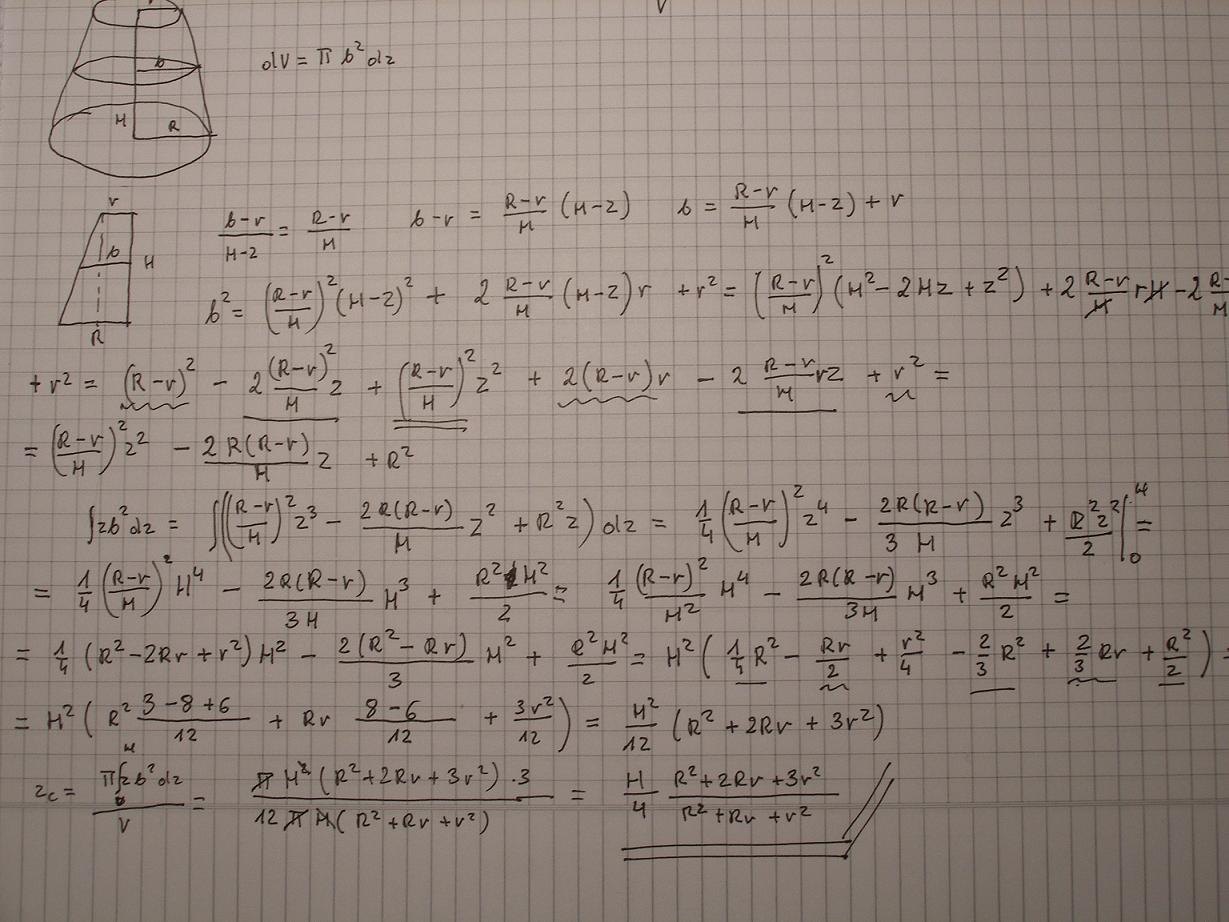 r
V
b
dV = π b² dz
H
R
r
b
H
R
(b-r)/(H-z) = (R-r)/H    b-r = (R-r)/H (H-z)    b = (R-r)/H (H-z) + r
b² = ((R-r)/H)² (H-z)² + 2 (R-r)/H (H-z) r + r² = ((R-r)/H)² (H² - 2Hz + z²) + 2 (R-r)/H rH - 2 (R-r)/H
+ r² = (R-r)² - 2 (R-r)²/H z + ((R-r)/H)² z² + 2(R-r)r - 2 (R-r)/H rz + r² =
= ((R-r)/H)² z² - 2R(R-r)/H z + R²
∫zb²dz = ∫(((R-r)/H)² z³ - 2R(R-r)/H z² + R²z) dz = 1/4 ((R-r)/H)² z⁴ - 2R(R-r)/(3H) z³ + R²z²/2 |₀ᴴ =
= 1/4 ((R-r)/H)² H⁴ - 2R(R-r)/(3H) H³ + R²H²/2 = 1/4 (R-r)²/H² H⁴ - 2R(R-r)/(3H) H³ + R²H²/2 =
= 1/4 (R² - 2Rr + r²) H² - 2(R² - Rr)/3 H² + R²H²/2 = H² (1/4 R² - Rr/2 + r²/4 - 2/3 R² + 2/3 Rr + R²/2) =
= H² (R² (3-8+6)/12 + Rr (8-6)/12 + 3r²/12) = H²/12 (R² + 2Rr + 3r²)
z_c = π∫₀ᴴ zb²dz / V = π H² (R² + 2Rr + 3r²) · 3 / (12 π H (R² + Rr + r²)) = H/4 (R² + 2Rr + 3r²)/(R² + Rr + r²)